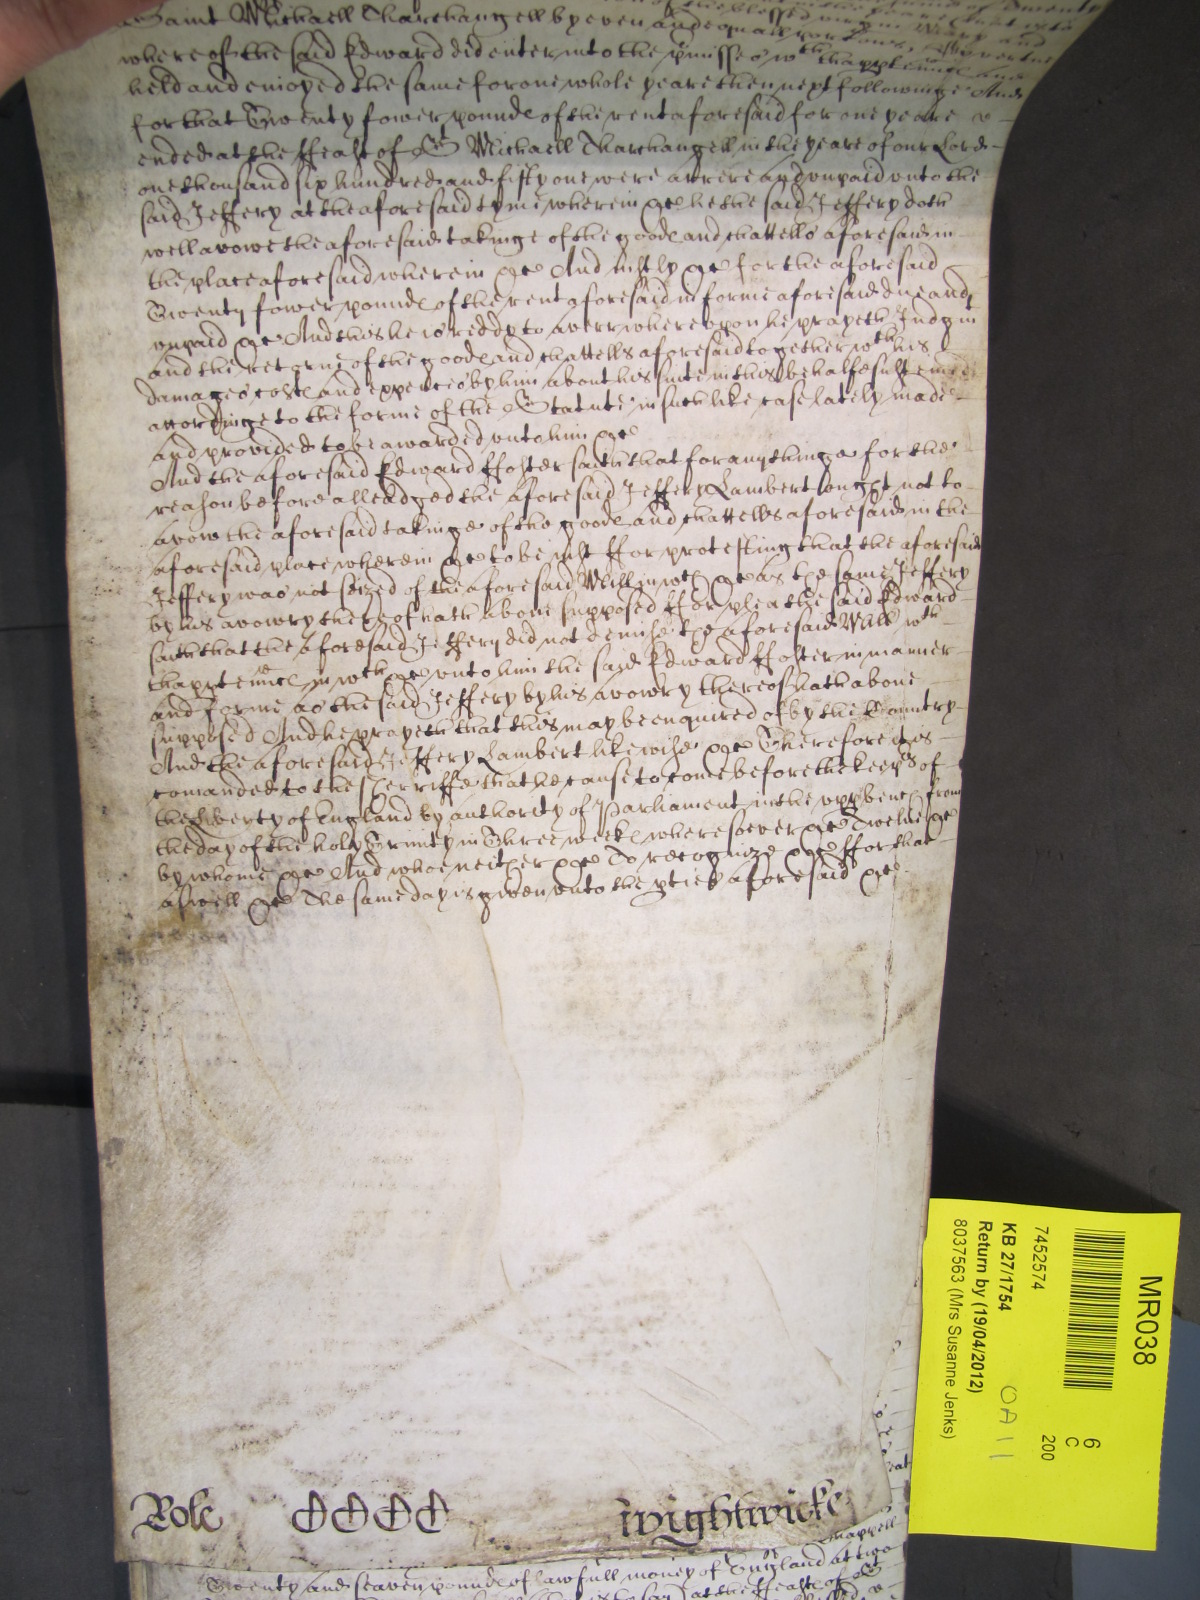 Saint Michaell Tharchangell by even and equall porc̃ons, By vertue
whereof the said Edward did enter into the p̃misses wth thappten̄nc̃es and
held and enioyed the same for one whole yeare then next followinge And
for that Twenty fower pounds of the rent aforesaid for one yeare
ended at the ffeast of St Michaell Tharchangell in the yeare of our Lord
one thousand six hundred and fifty one were arrere and unpaid unto the
said Jeffery at the aforesaid tyme wherein &c he the said Jeffery doth
well avowe the aforesaid takinge of the goods and chattells aforesaid in
the place aforesaid wherein &c And iustly &c for the aforesaid
Twenty fower pounds of the rent aforesaid in forme aforesaid due and
unpaid &c And this he is reddy to averr whereupon he prayeth Judgmt
and the retorne of the goods and chattells aforesaid together wth his
damages costs and expences by him about his suite in this behalfe susteined
accordinge to the forme of the Statute in such like case lately made
and provided to be awarded unto him &c
And the aforesaid Edward ffoster saith that for any thinge for the
reason before alleadged the aforesaid Jeffery Lambert ought not to
avow the aforesaid takinge of the goods and chattells aforesaid in the
aforesaid place wherein &c to be iust ffor protesting that the aforesaid
Jeffery was not seized of the aforesaid Mill in wch &c as the same Jeffery
by his avowry thereof hath above supposed ffor plea the said Edward
saith that the aforesaid Jeffery did not demise the aforesaid Mill wth
thapptenn̄c̃es in wch &c unto him the said Edward ffoster in manner
and forme as the said Jeffery by his avowry thereof hath above
supposed And he prayeth that this may be enquired of by the Countrey
And the aforesaid Jeffery Lambert likewise &c Therefore it is
comanded to the Sherriffe that he cause to come before the keeps of
the liberty of England by authority of Parliament in the upp bench from
the day of the holy Trinity in Three weeks wheresoever &c Twelve &c
by whome &c And whoe neither &c To recognize &c ffor that
aswell &c The same day is given unto the pties aforesaid &c
Role CCCC Wightwicke
Maxwell
Twenty and seaven pounds of lawfull money of England at two
at the ffeaste of St
MR038
6
C
200
7452574
KB 27/1754
OA11
Return by (19/04/2012)
8037563 (Mrs Susanne Jenks)